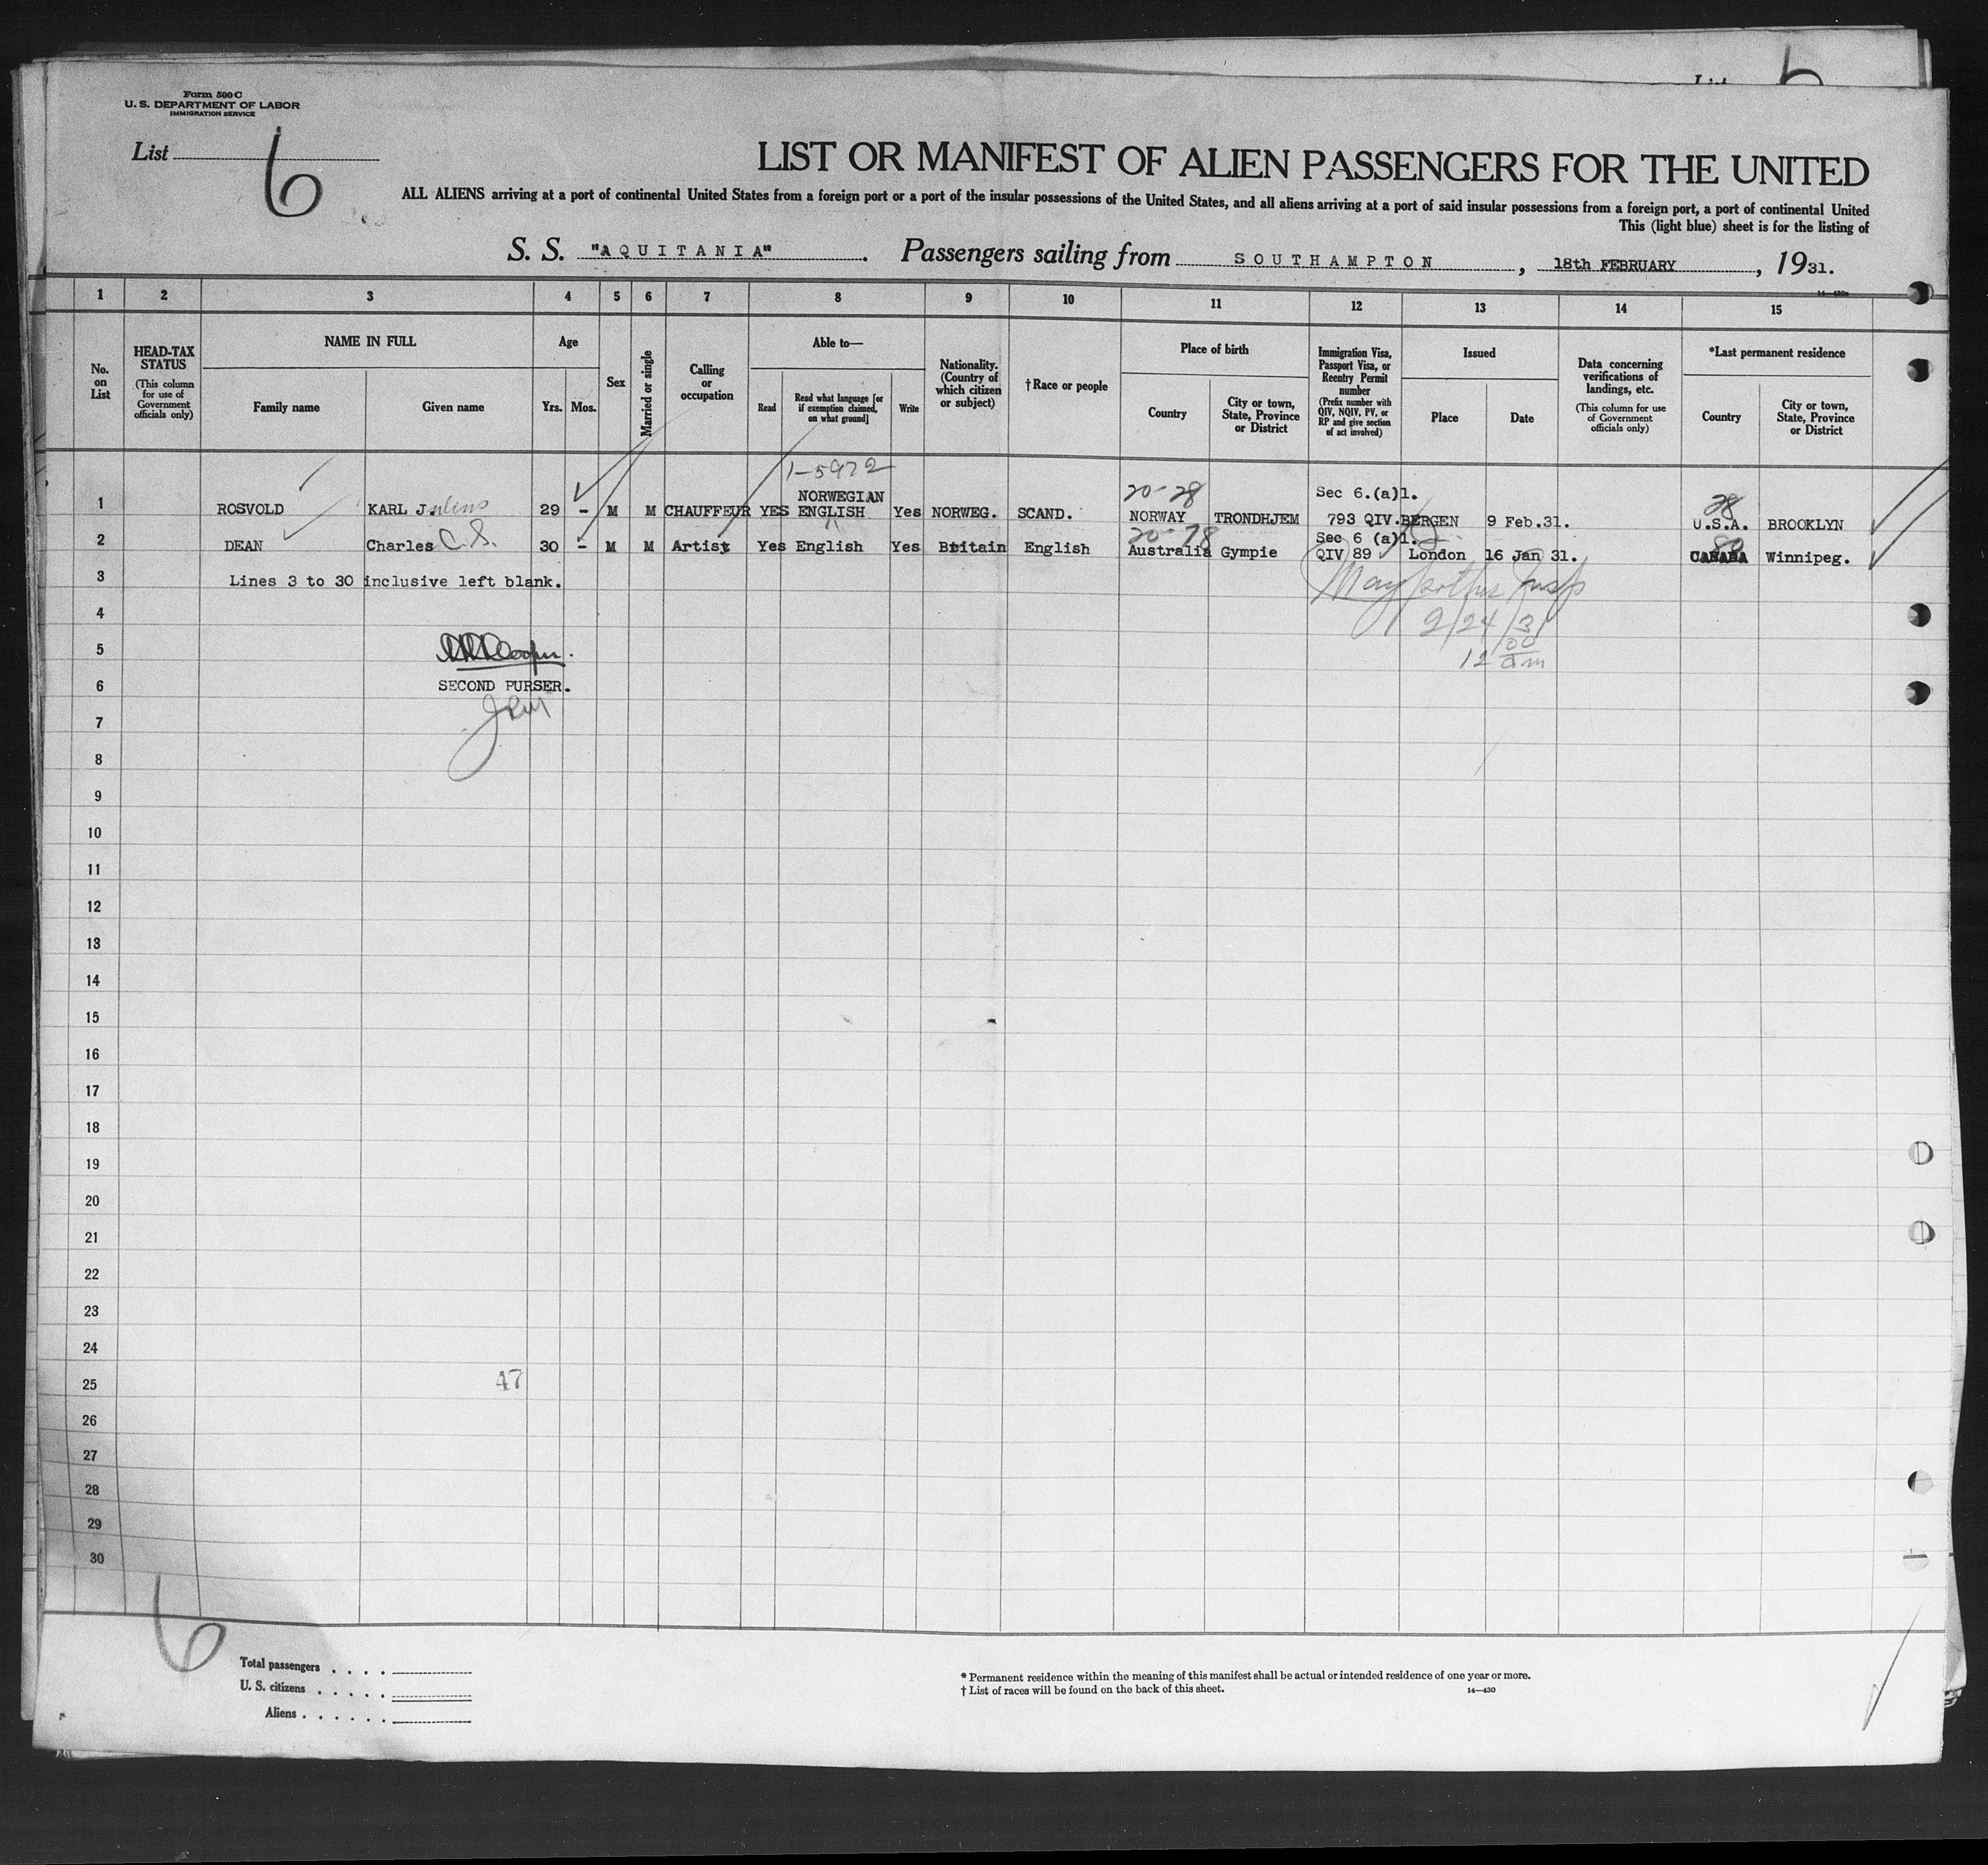 Form 500 C
U. S. DEPARTMENT OF LABOR
IMMIGRATION SERVICE
List 6
LIST OR MANIFEST OF ALIEN PASSENGERS FOR THE UNITED
ALL ALIENS arriving at a port of continental United States from a foreign port or a port of the insular possessions of the United States, and all aliens arriving at a port of said insular possessions from a foreign port, a port of continental United
This (light blue) sheet is for the listing of
S. S. "AQUITANIA". Passengers sailing from SOUTHAMPTON, 18th FEBRUARY, 1931.
1 2 3 4 5 6 7 8 9 10 11 12 13 14 15
No. on List
HEAD-TAX STATUS
(This column for use of Government officials only)
NAME IN FULL
Family name
Given name
Age
Yrs. Mos.
Sex
Married or single
Calling or occupation
Able to—
Read
Read what language [or if exemption claimed, on what ground]
Write
Nationality. (Country of which citizen or subject)
† Race or people
Place of birth
Country
City or town, State, Province or District
Immigration Visa, Passport Visa, or Reentry Permit number
(Prefix number with QIV, NQIV, PV, or RP and give section of act involved)
Issued
Place
Date
Data concerning verifications of landings, etc.
(This column for use of Government officials only)
*Last permanent residence
Country
City or town, State, Province or District
1-5972
NORWEGIAN 20-28 Sec 6.(a)1. 28
1 ROSVOLD KARL Julius 29 - M M CHAUFFEUR YES ENGLISH Yes NORWEG. SCAND. NORWAY TRONDHJEM 793 QIV. BERGEN 9 Feb.31. U.S.A. BROOKLYN
20-28 Sec 6 (a)1.
2 DEAN Charles C. S. 30 - M M Artist Yes English Yes Britain English Australia Gympie QIV 89 London 16 Jan 31. CANADA Winnipeg.
3 Lines 3 to 30 inclusive left blank.
4
2/24/31
5
12 00 am
6 SECOND PURSER.
7
8
9
10
11
12
13
14
15
16
17
18
19
20
21
22
23
24
25 47
26
27
28
29
30
6
Total passengers . . . .
U. S. citizens . . . . .
Aliens . . . . . .
* Permanent residence within the meaning of this manifest shall be actual or intended residence of one year or more.
† List of races will be found on the back of this sheet. 14—430